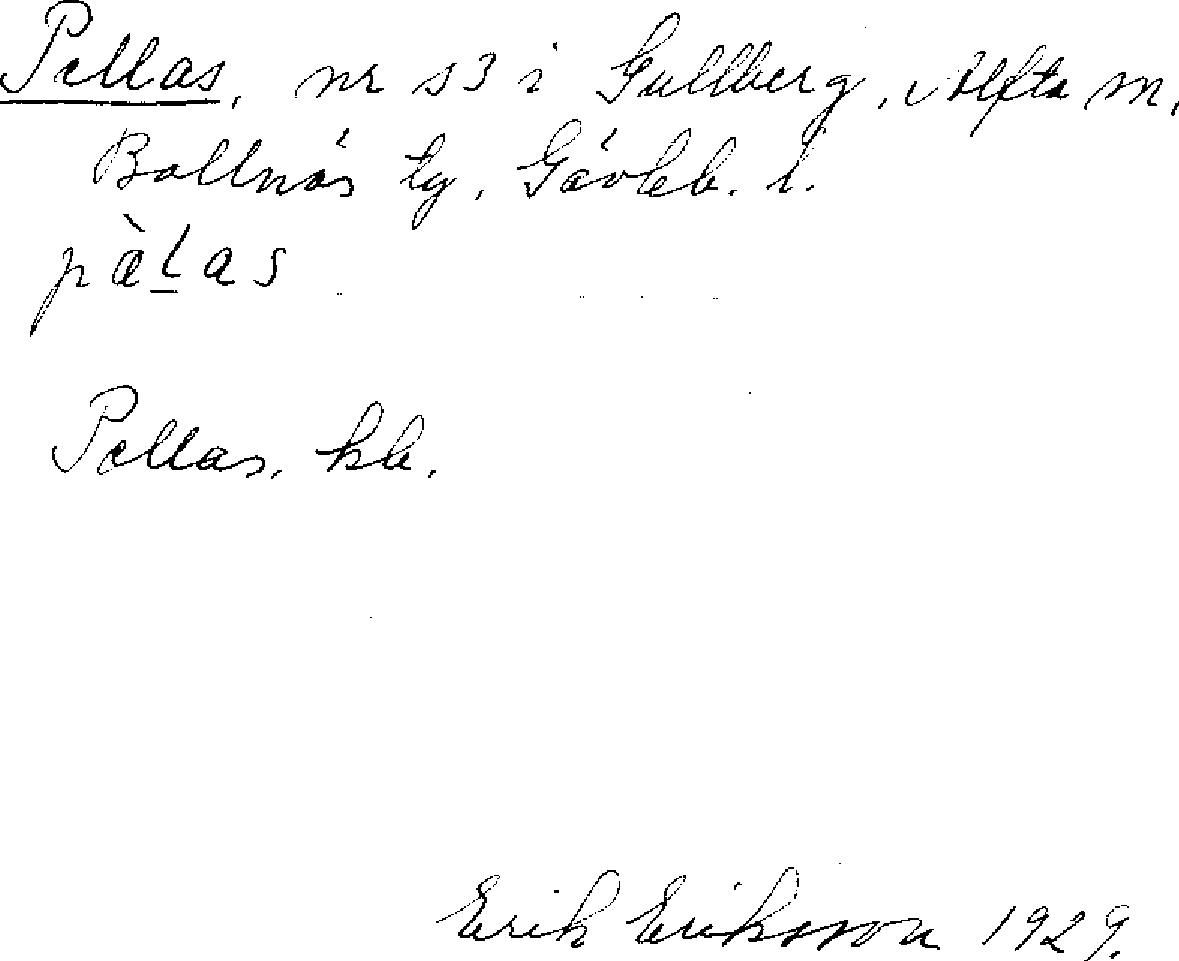 Pellas, nr 53 i Gullberg, Alfta m,
Bollnäs tg, Gävleb. l.
pàḻas
Pellas, kb.
Erik Eriksson 1929.